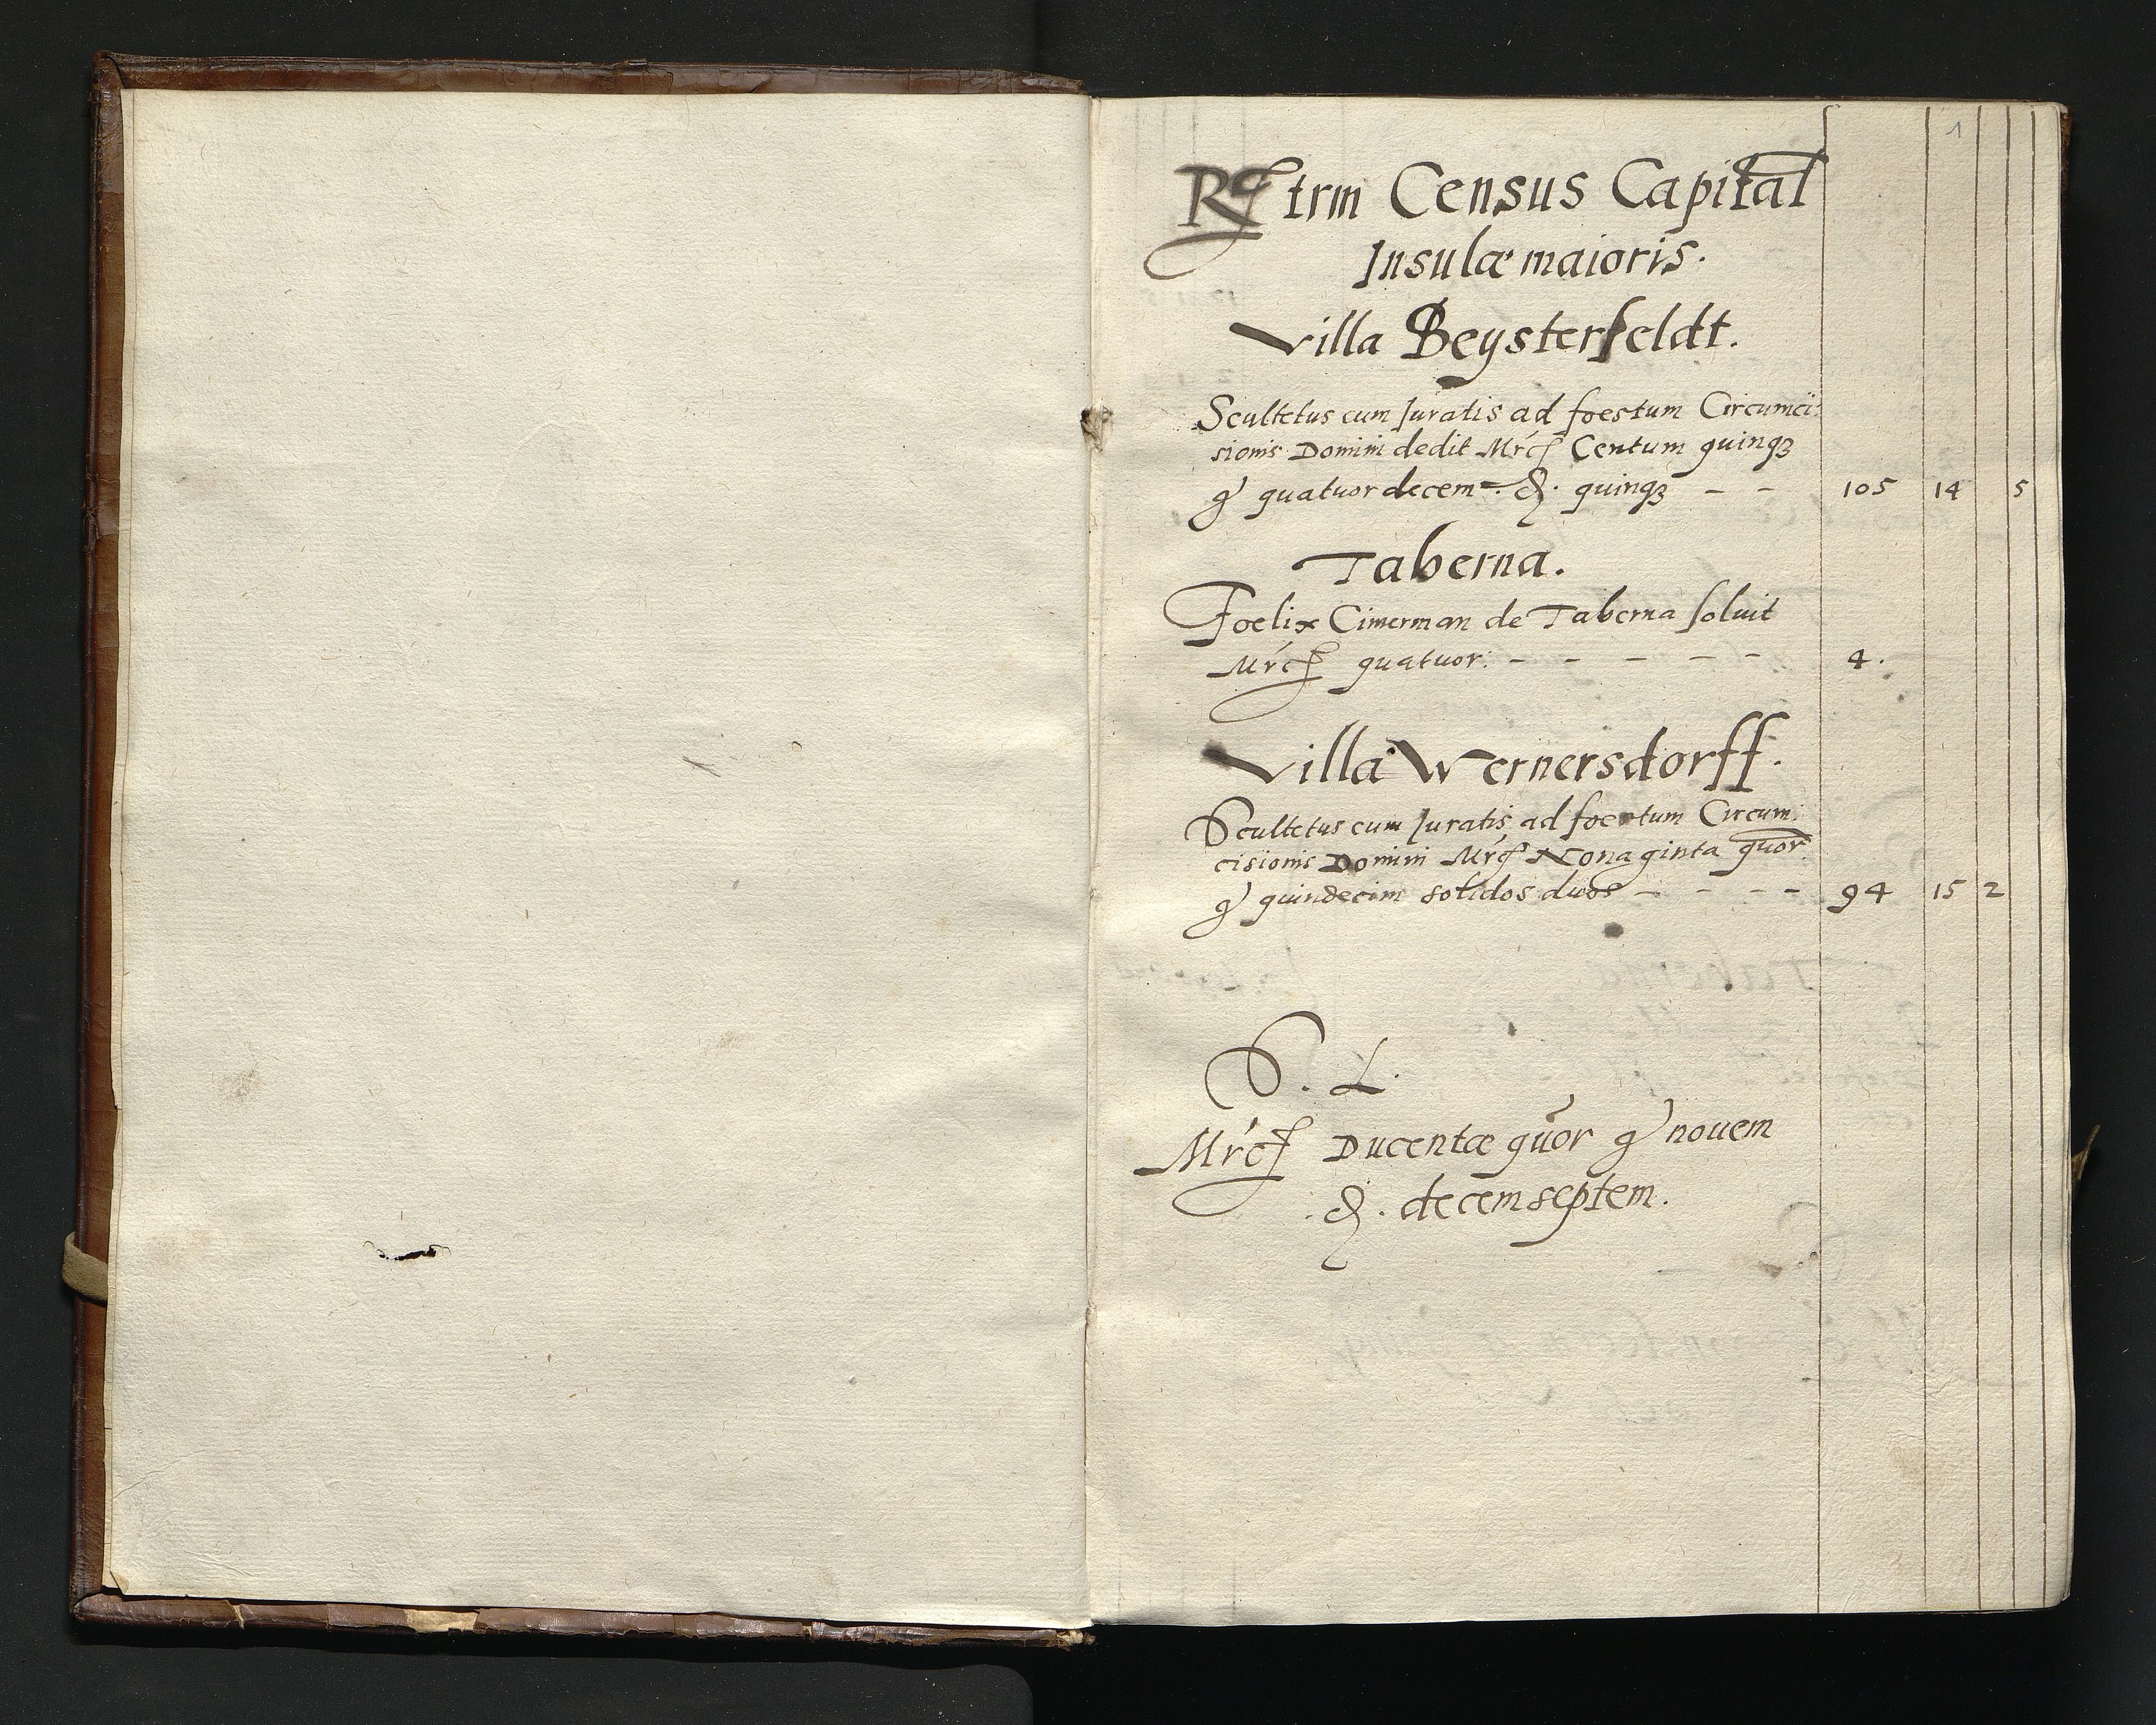 1
Rgtrm Census Capital
Insulæ maioris.
Villa Beysterfeldt.
Scultetus cum Juratis ad foestum Circumci:
sionis Domini dedit Mrc Centum quinqꝫ
g quatuordecem. ₰. quinqꝫ – – 105 14 5
Taberna.
Foelix Cimerman de Taberna soluit
Mrc quatuor. – – – – – 4.
Villa Wernersdorff.
Scultetus cum Juratis ad foestum Circum:
cisionis Domini Mrc Nonaginta quor
g quindecim solidos duos – – – – 94 15 2
S. L.
Mrc Ducentæ quor g nouem
₰. decem septem.